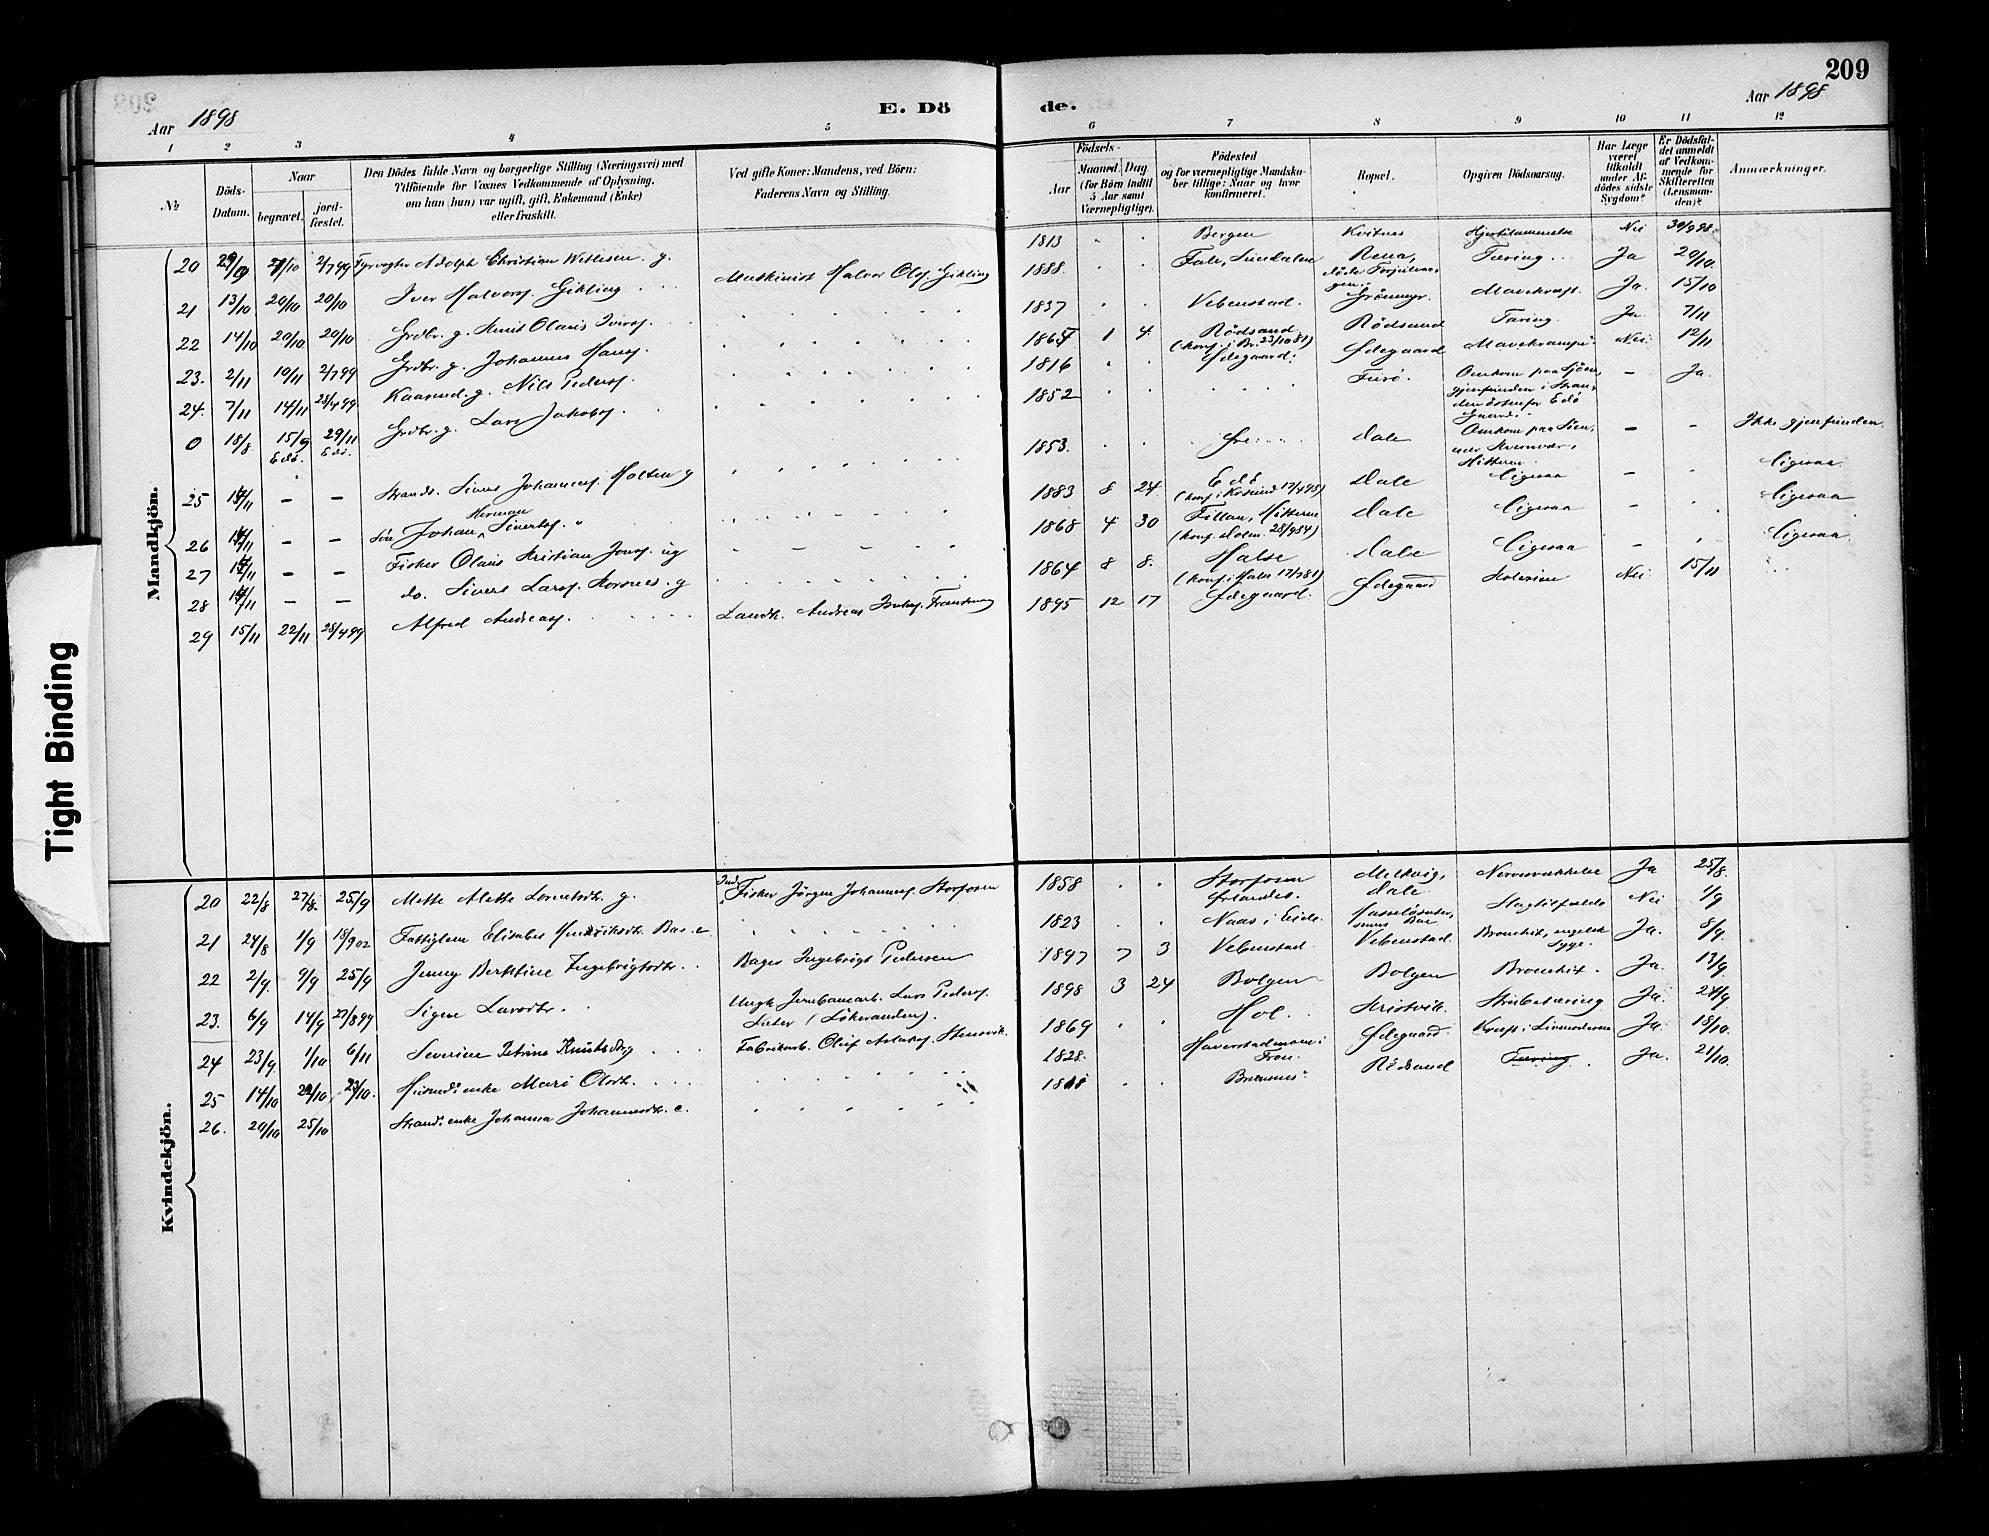 209
Aar 1898
E. Dö de.
Aar 1898
1 2 3 4 5 6 7 8 9 10 11 12
№
Döds-Datum.
Naar
begravet.
jord-fæstet.
Den Dödes fulde Navn og borgerlige Stilling (Næringsvei) med
Tilföiende for Voxnes Vedkommende af Oplysning,
om han (hun) var ugift, gift, Enkemand (Enke)
eller fraskilt.
Ved gifte Koner: Mandens, ved Börn:
Faderens Navn og Stilling.
Födsels-
Aar
Maaned. Dag.
(for Börn indtil
5 Aar samt
Værnepligtige).
Födested
og for værnepligtige Mandska-
ber tillige: Naar og hvor
konfirmeret.
Bopæl.
Opgiven Dödsaarsag.
Har Læge
været
tilkaldt
under Af-
dödes sidste
Sygdom?
Er Dödsfal-
det anmeldt
af Vedkom-
mende for
Skifteretten
(Lensman-
den)?
Anmærkninger.
Mandkjön.
20 29/9 7/10 2/7 99 Fyrvogter Adolph Christian Wetlesen. g. 1813 Bergen Kvitnes Hjertelammelse Nei 30/9 98.
21 13/10 20/10 20/10 Iver Halvors. Gikling Maskinist Halvor Ols. Gikling 1888. Fale, Sundalen Rena, Tæring Ja 20/10.
22 14/10 20/10 20/10 Grdbr. g. Knut Olaus Ivers. 1837 Vebenstad. Grönmyr. Mavekræft. Ja. 15/10
23. 2/11 10/11 2/7 99 Grdbr. g. Johannes Hans. 1 4. Rödsand (konf. i Br. 23/10 81) Rödsand Tæring. Ja. 7/11
24. 7/11 14/11 23/4 99 Kaarmd. g. Nils Peders. 1816 Ødegaard. Ødegaard Mavekrampe Nei 12/11
0 18/8. 15/9 Edö. 29/11 Edö. Grdbr. g. Lars Jakobs. 1852 Furö. Omkom paa Sjöen, gjenfunden i Stran-den Edö Gaard. – Ja.
25 14/11 – – Strands. Sivert Johannes. Holten g 1853. Dale Omkom paa Söen, Hitteren. – – Ikke gjenfunden.
26 14/11 – – Sön Johan Herman Siverts. " 1883 8 24 Edö (konf. i Krsund 17/4 98) Dale Ligesaa – Ligesaa.
27 14/11 – – Fisker Olaus Kristian Jons. ug 1868 4 30 Fillan, Hitteren (konf. Dolm. 28/9 84) Dale Ligesaa – Ligesaa
28 14/11 – – do. Sivert Lars. Korsnes. g 1864 8 8. Halse (konf. i Halse 17/7 81) Dale Ligesaa – Ligesaa.
29 15/11 22/11 23/4 99 Alfred Andreas. Landh. Andreas 1895 12 17 Ødegaard. Ødegaard Kolerine Nei 15/11
Kvindekjön.
20 22/8 27/8. 25/9 Mette Mette Lorentsdtr. g. Inds. Fisker Jörgen Johannes. Storfosen 1858 Storfosen Örlandet. Melkvig, Dale. Nervesvækkelse Ja 25/8.
21 24/8 1/9 18/9 02 Fattiglem Elisabet Henriksdtr. Bae. e. 1823 Naas i Eide. Slagtilfælde Nei 1/9
22 2/9. 9/9 25/9 Jenny Berntine Ingebrigtsdtr. Bager Ingebrigt Pedersen 1897 7 3 Vebenstad. Vebenstad. Bronchit, engelsk Syge. Ja. 8/9.
23. 6/9 14/9 27/8 99 Signe Larsdtr. Ungk. Jernbanearb. Lars Peders. Sæter (Lökeranden). 1898 3 24 Bolgen Bolgen Bronchit. Ja. 13/9.
24 23/9 1/10 6/11 Severine Petrine Knutsdtr. g Fabrikarb. Oluf Aslaks. Stensvik. 1869 Hol. Kristvik. Strubetæring Ja. 24/9
25 14/10 22/10 23/10. Husmd. enke Mari Olsdtr. 1828. Haverstadmoen i Fron. Ødegaard. Kræft i Livmoderen Ja. 18/10.
26. 20/10 25/10 Strandsenke Johanna Johannesdtr. e. 1818 Bremsnes. Rödsand Tæring. Ja. 21/10.
Tight Binding